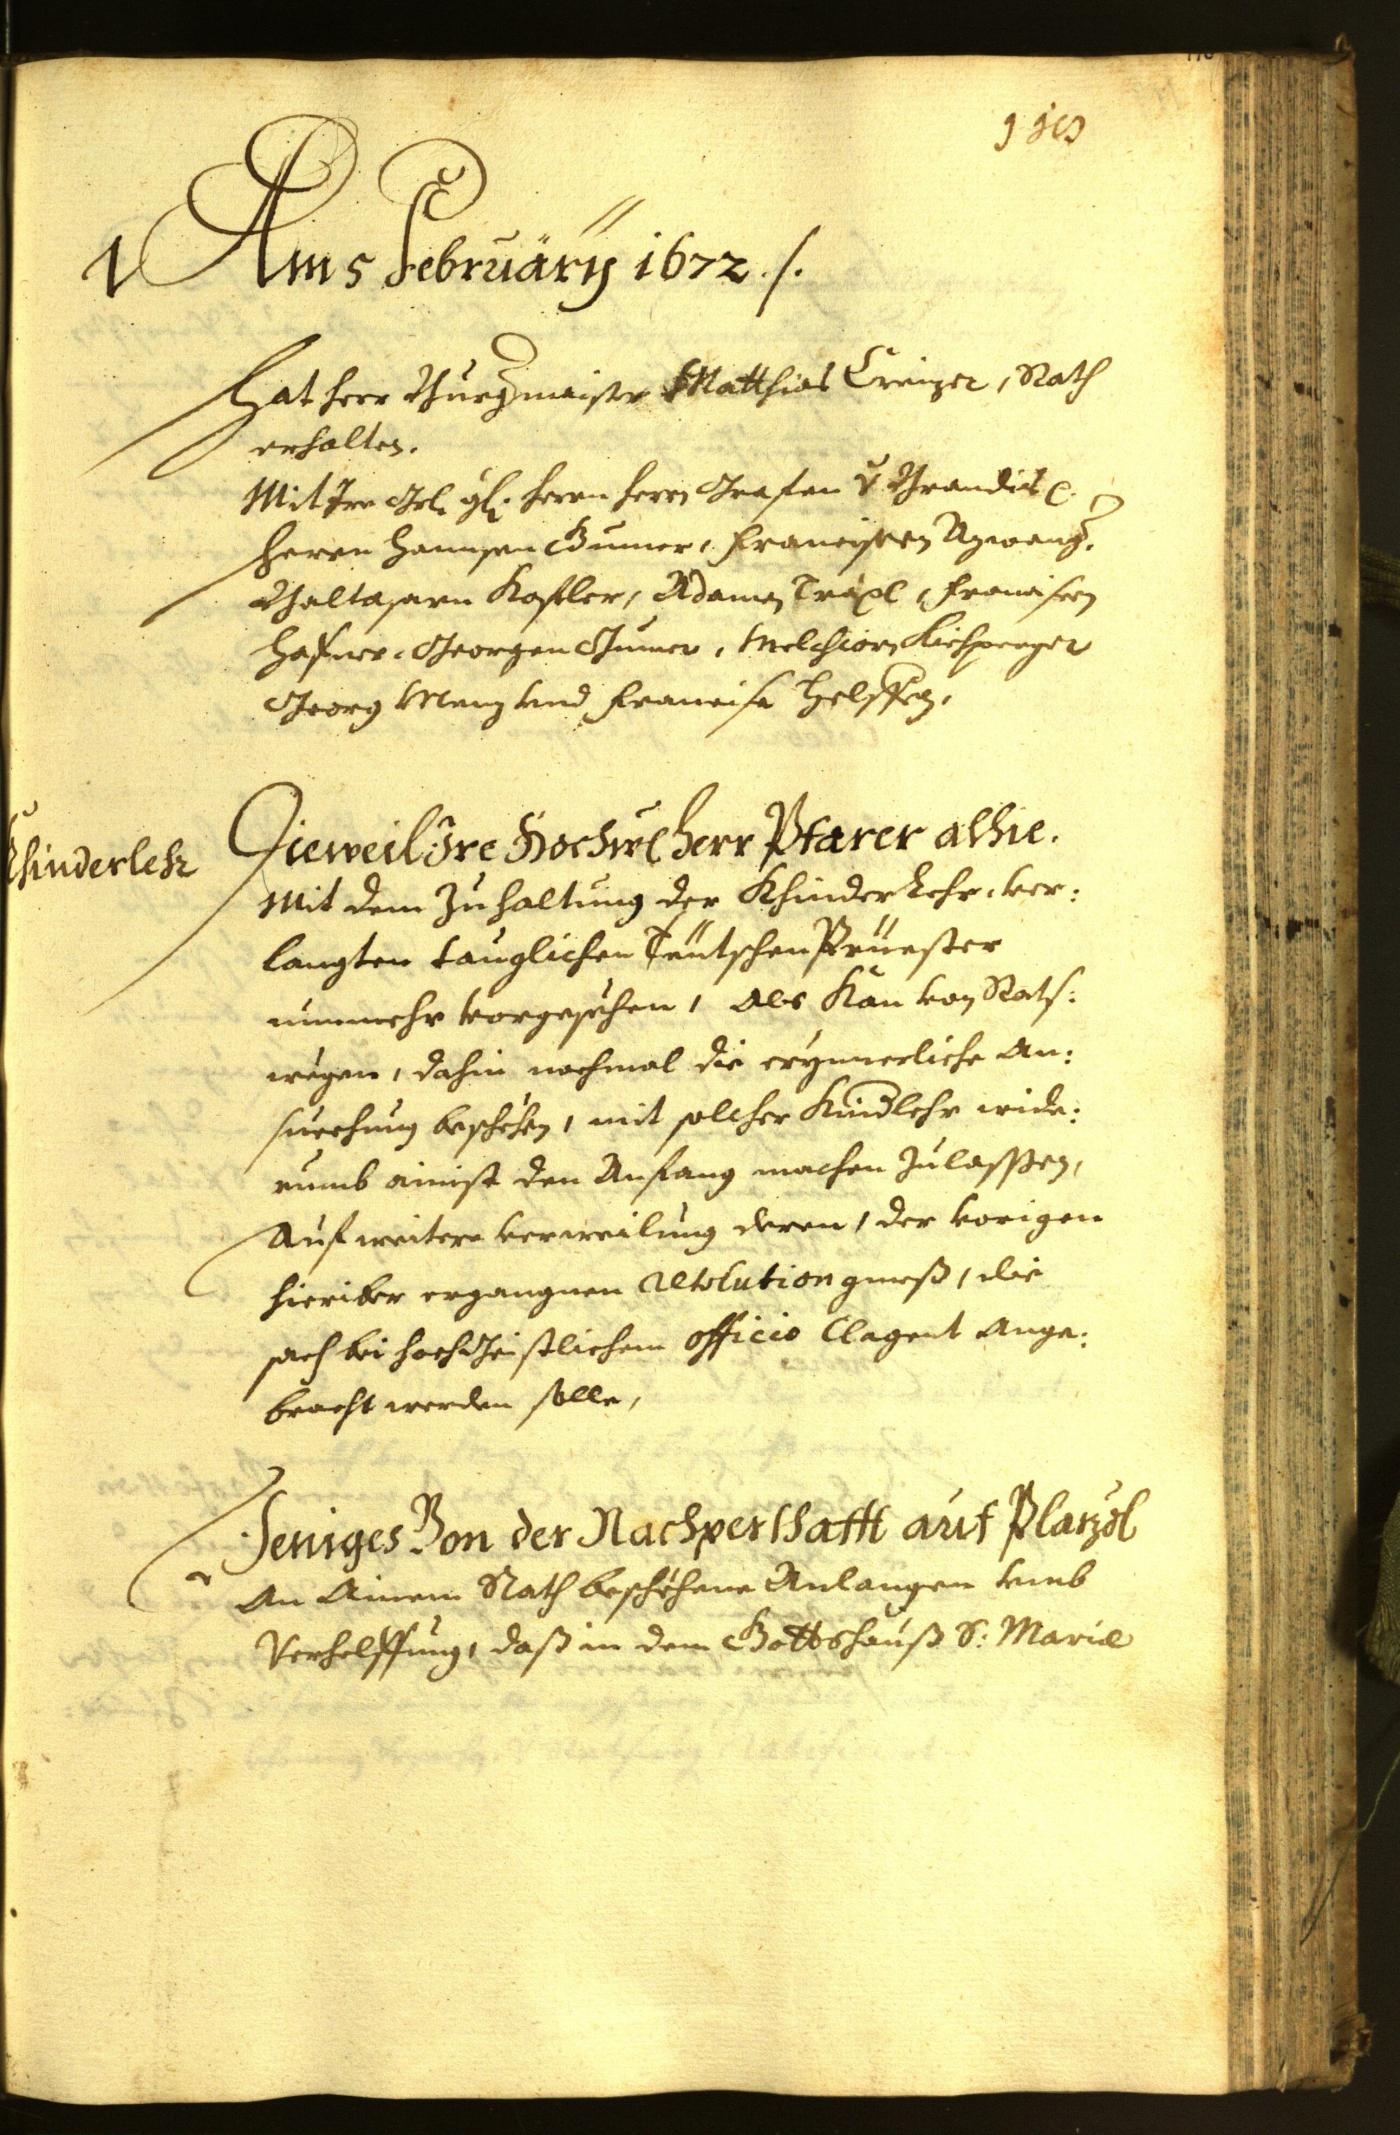 Am 5 Februarÿ 1672 ./.
Hat herr Burgermaister Matthias Creizer, Rath
erhalten.
Mit Ire herrn herrn Grafen v. Brandis
herrn Hannsen Gumer, Francisten
Balthasarn Kofler, Adamen Francisten
Hafner, Georgen Gumer, Melchiorn Kirchperger
Georg Menz vnd Francisc Helffer,
Khinderlehr
Dieweil Ire Hochw: herr Pfarer alhie.
Mit dem Zuhaltung der Khinder Lehr, ver:
langten tauglichen Teutschen Prüester
nunmehr vorgesehen, Als kan von Rats:
wegen, dahin nochmal die erynnerliche An:
suechung beschehen, mit solcher Kindlehr wide:
rumb ainist den Anfang machen zulassen,
Auf weitere verweilung deren, der vorigen
hieriber ergangnen resolution gmeß, die
sach bei hochgeistlichem officio Clagent ange:
bracht werden solle,
Jeniges Von der Nachperschafft auf Plarzöl
An Ainem Rath beschehene Anlangen vmb
Verhelffung, daß in dem Gottshauß S: Mariæ